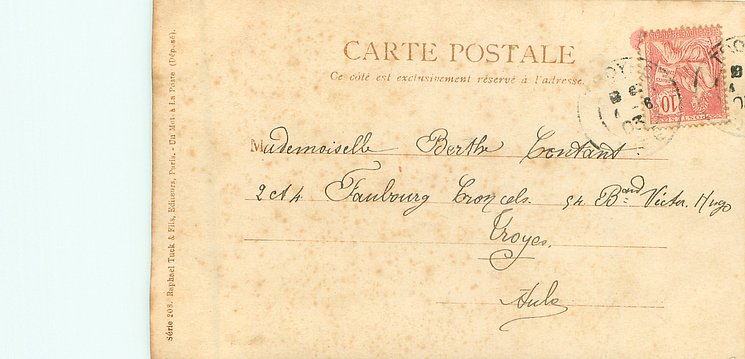 CARTE POSTALE
Ce côté est exclusivement réservé à l'adresse.
Mademoiselle Berthe Contant.
2 et 4 Faubourg Croncels. 54 Bard Victor Hugo
Troyes.
Aube
Série 208. Raphael Tuck & Fils, Editeurs, Paris. - Un Mot à La Poste (Déposé).
10
03